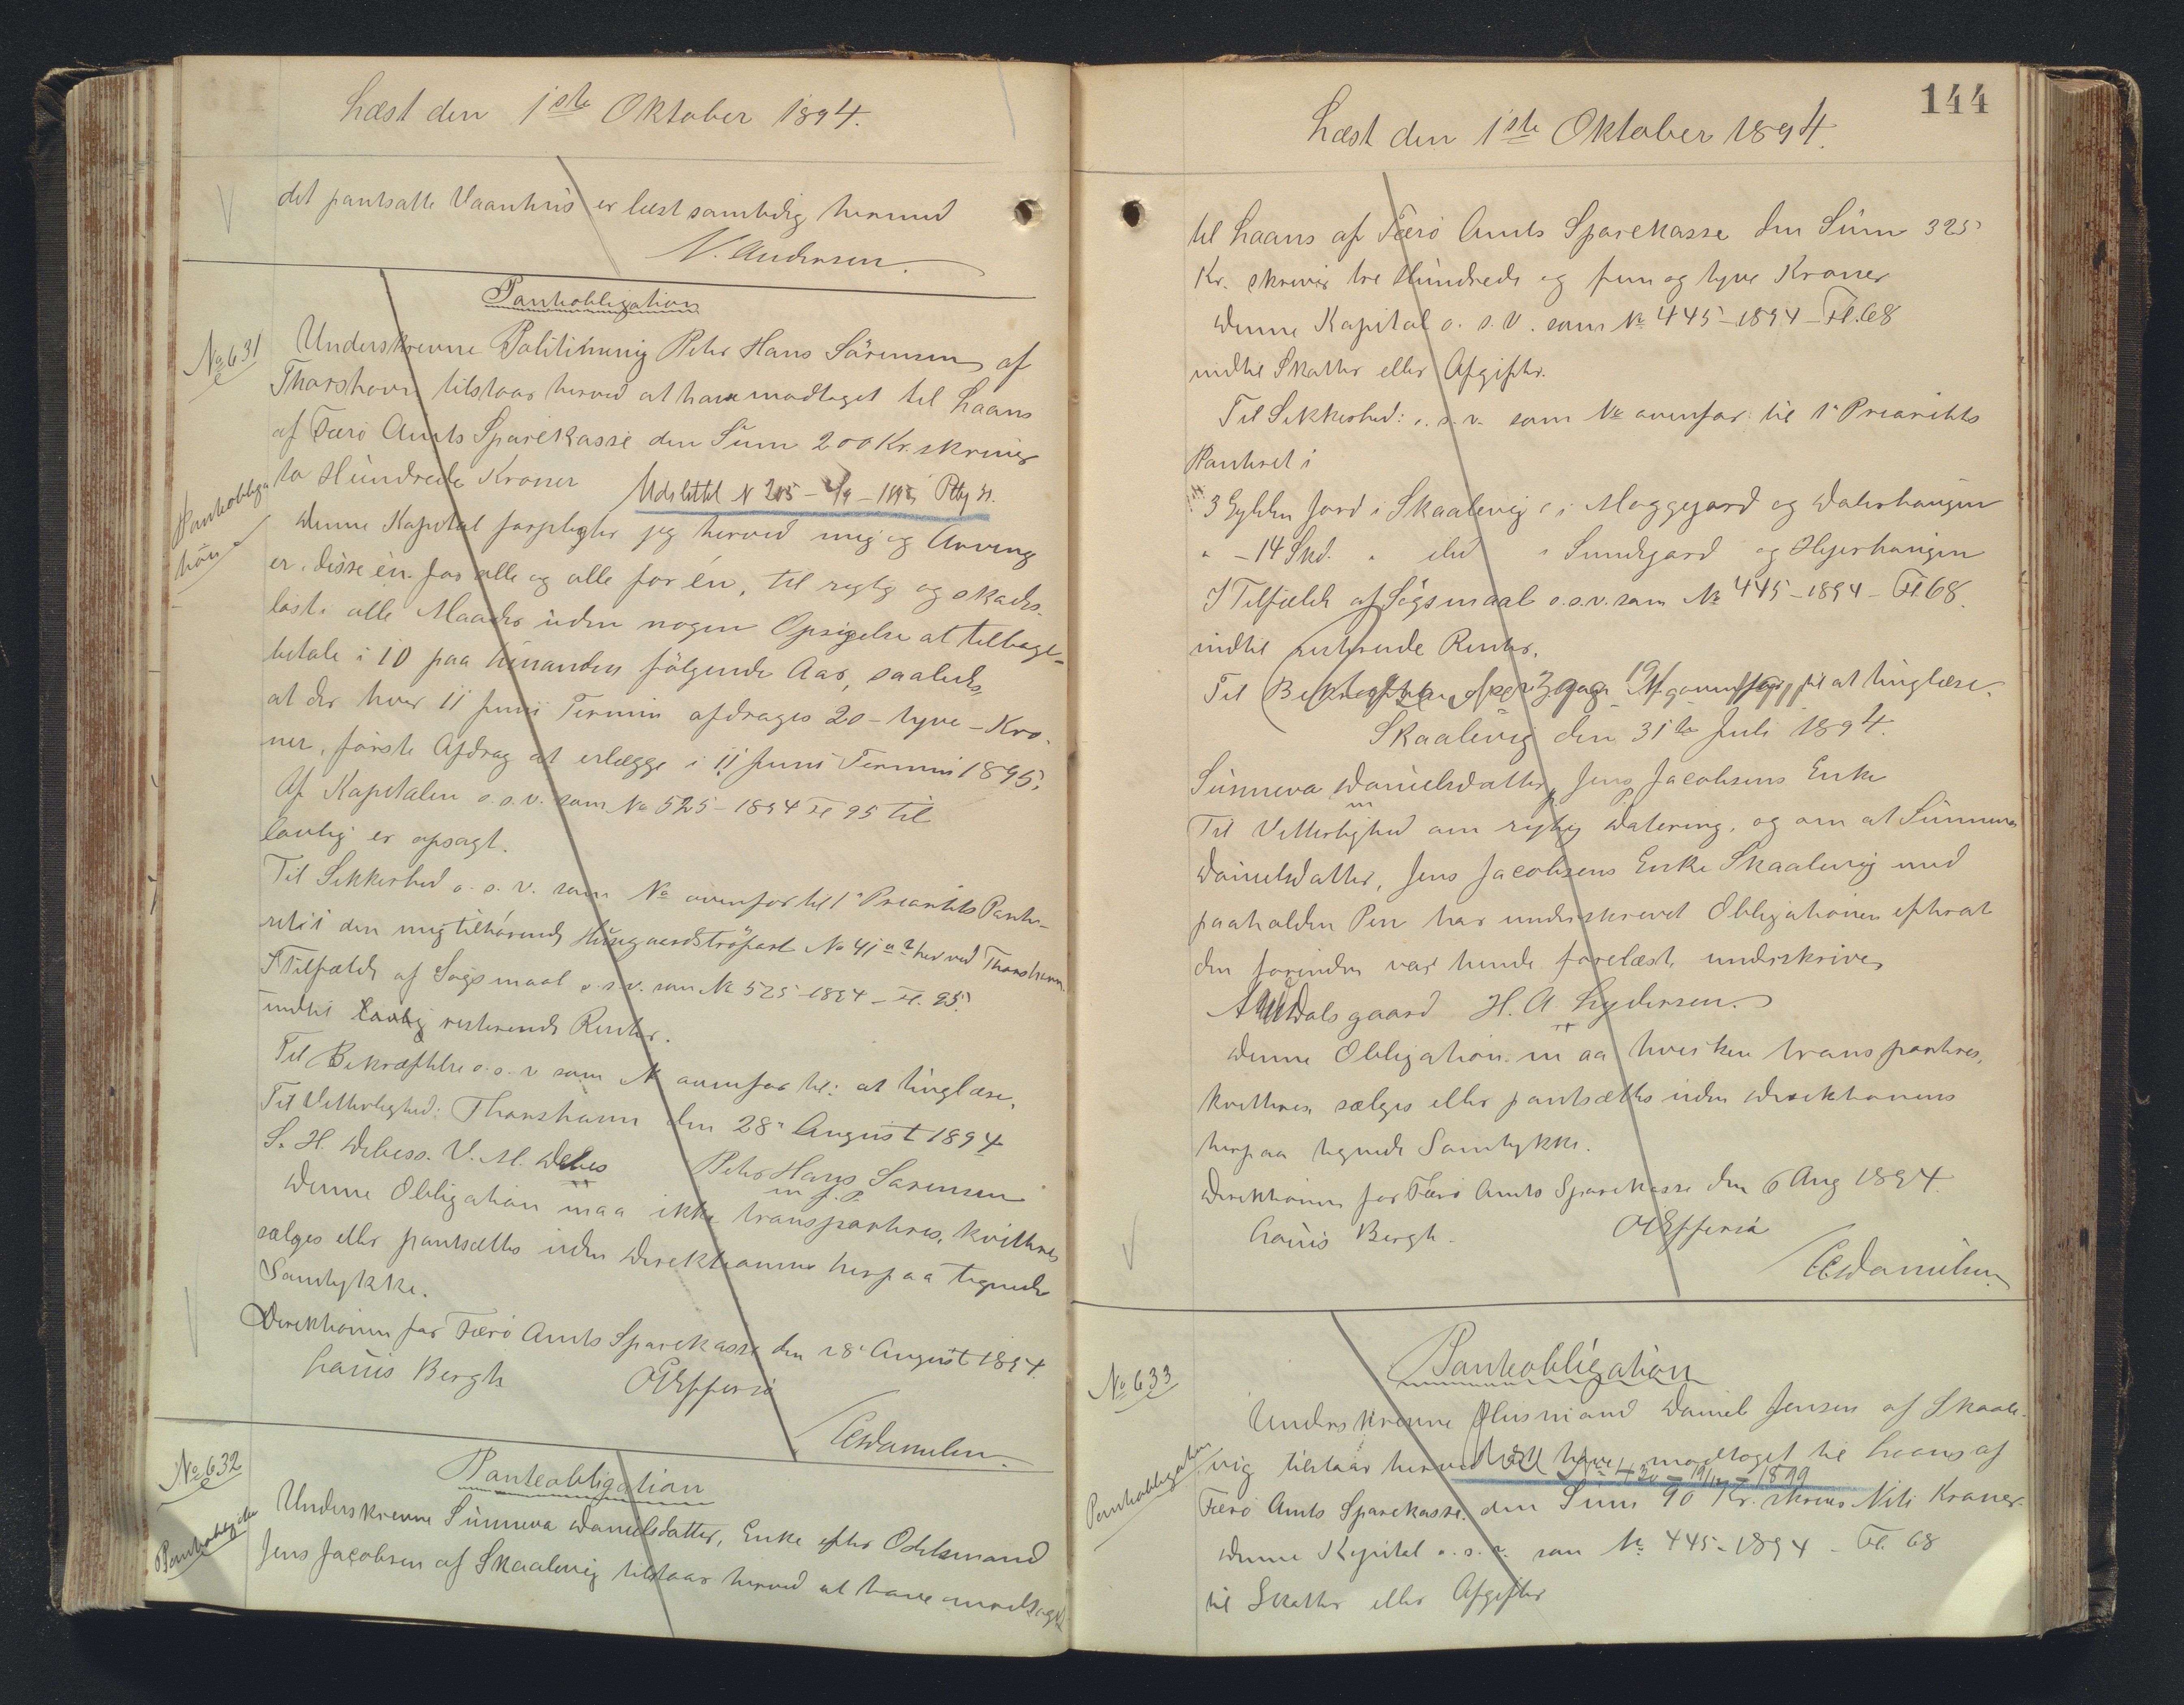 Læst den 1ste Oktober 1894.
det pantsatte Vaanhus er læst samtidig hermed
N. Andersen.
Panteobligation
No 631
Panteobliga
tion
Underskrevne Politibetjent Peter Hans Sörensen af
Thorshavn tilstaar herved at have modtaget til Laans
af Færö Amts Sparekasse den Sum 200 Kr. skriver
to Hundrede Kroner
Udslettet N 205 -
Denne Kapital forpligter jeg herved mig og Arving
er, disse én for alle og alle for én, til rigtig og skades-
löst i alle Maader uden nogen Opsigelse at tilbage-
betale i 10 paa hinanden fölgende Aar, saaledes,
at der hver 11 Juni Termin afdrages 20 - tyve - Kro-
ner, förste Afdrag at erlægge i 11 Juni Termin 1895.
Af Kapitalen o.s.v. som No 525 - 1894 Fl 95 til
lovlig er opsagt.
Til Sikkerhed o.s.v. som No ovenfor til 1' Prioritets Pante-
ret i den mig tilhörende Husgaardströpart No 41 a 2 her ved Thorshavn
I Tilfælde af Sögsmaal o.s.v. som No 525 - 1894 - Fl. 95.
indtil resterende Renter.
Til Bekræftelse o.s.v. som N ovenfor til: at tinglæse.
Til Vitterlighed: Thorshavn den 28' August 1894
S. H. Debess. V. M. Debes Peter Hans Sörensen
m. f. P.
Denne Obligation maa ikke transporteres, kvitteres
sælges eller pantsættes uden Direktionens herpaa tegnede
Samtykke.
Direktionen for Færö Amts Sparekasse den 28' August 1894.
Louis Bergh OEffersö
CCDanielsen.
No 632
Panteobligation
Panteobligation
Underskrevne Sunneva Danielsdatter, Enke efter Odelsmand
Jens Jacobsen af Skaalevig tilstaar herved at have modtaget
144
Læst den 1ste Oktober 1894.
til Laans af Færö Amts Sparekasse den Sum 325
Kr. skriver tre Hundrede og fem og tyve Kroner
Denne Kapital o.s.v. som No 445 - 1894 - Fl. 68
indtil Skatter eller Afgifter.
Til Sikkerhed: o.s.v. som No ovenfor til 1' Prioritets
Panteret i
3 Gylden Jord i Skaalevig i Moggegjord og Dalerhaugen
" - 14 Skd. " " Sundgard og Hejerhaugen
I Tilfælde af Sögsmaal o.s.v. som No 445 - 1894 - Fl. 68.
indtil resterende Renter.
Til Bekræftelse til at tinglæse.
Skaalevig den 31te Juli 1894.
Sunneva Danielsdatter, Jens Jacobsens Enke
m P.
Til Vitterlighed om rigtig Datering, og om at Sunneva
Danielsdatter, Jens Jacobsens Enke Skaalevig med
paaholden Pen har underskrevet Obligationen efterat
den forinden var hende forelæst, underskriver
Dalsgaard H. A. Lydersen.
Denne Obligation maa hverken transporteres,
kvitteres sælges eller pantsættes uden Direktionens
herpaa tegnede Samtykke.
Direktionen for Færö Amts Sparekasse den 6 Aug 1894.
Louis Bergh. OEffersö
CCDanielsen
No 633
Panteobligation
Panteobligation
Underskrevne Husmand Daniel Jensen af Skaale-
vig tilstaar herved at have modtaget til Laans af
1899
Færö Amts Sparekasse den Sum 90 Kr. skriver Niti Kroner.
Denne Kapital o.s.v. som No 445 - 1894 - Fl. 68
til Skatter eller Afgifter